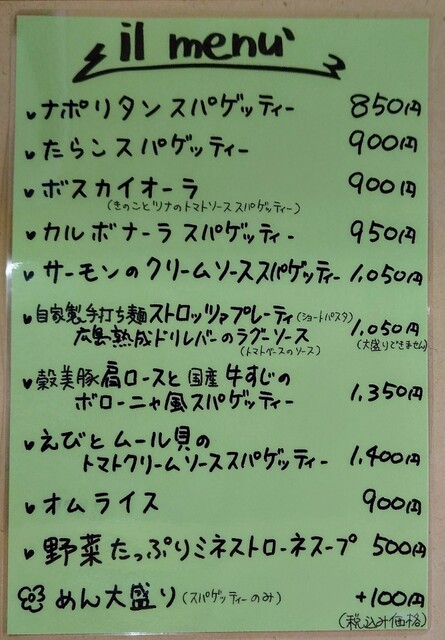 il menu`
ナポリタン スパゲッティー 850円
たらこ スパゲッティー 900円
ボスカイオーラ 900円
(きのことツナのトマトソース スパゲッティー)
カルボナーラ スパゲッティー 950円
サーモンのクリームソーススパゲッティー 1,050円
自家製手打ち麺ストロッツァプレーティ(ショートパスタ)
広島熟成ドリルバーのラグーソース 1,050円
(トマトベースのソース) (大盛りできません)
穀美豚肩ロースと国産牛すじの
ボローニャ風スパゲッティー 1,350円
えびとムール貝の
トマトクリームソーススパゲッティー 1,400円
オムライス 900円
野菜たっぷりミネストローネスープ 500円
めん大盛り(スパゲッティーのみ) +100円
(税込み価格)